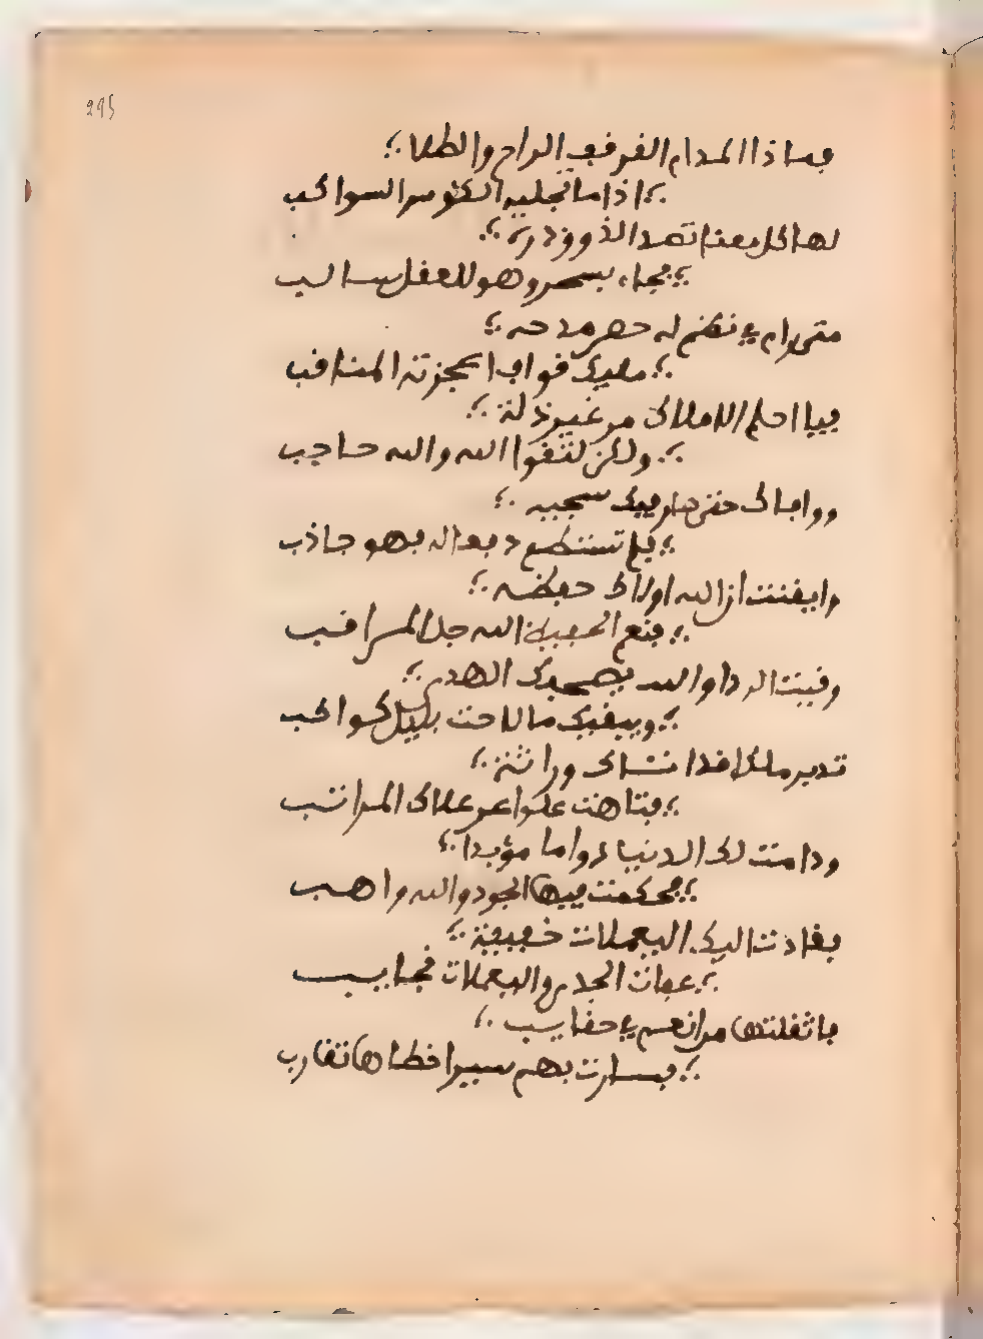 295
فماذا المدام القرقف الراح والطلا
اذا ما تجليه الكئوس السواكب
لها كل معنا تصد الذوو ذره
فجاء بسحر وهو للعقل سالب
متى رام في نظم له حصر مدحه
مليك قواف اعجزته المناقب
فيا احلم الاملاك من غير ذلة
ولكن لتقوا الله والله حاجب
وواباك حتى صار فيك سجية
فلم تستطع دفعا له فهو جاذب
وايقنت ان الله اولاك حفظه
فنعم الحفيظ الله جل المراقب
وقيت الردا والله يصحبك الهدى
ويبقيك ما لاحت بليل كواكب
تدير ملكا قد انشاك وراثة
فتاهت علوا عن علاك المراتب
ودامت لك الدنيا دواما مؤبدا
فحكمت فيها الجود والله واهب
فغادت اليك اليعملات خفيفة
عفات الجدى واليعملات نجايب
فاثقلتها من انعم في حقايب
فسارت بهم سيرا خطاها تقارب